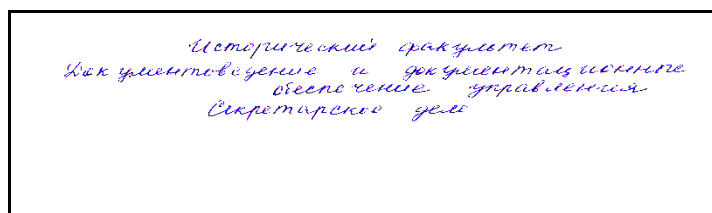 Исторический факультет
Документоведение и документационное
обеспечение управления
Секретарское дело